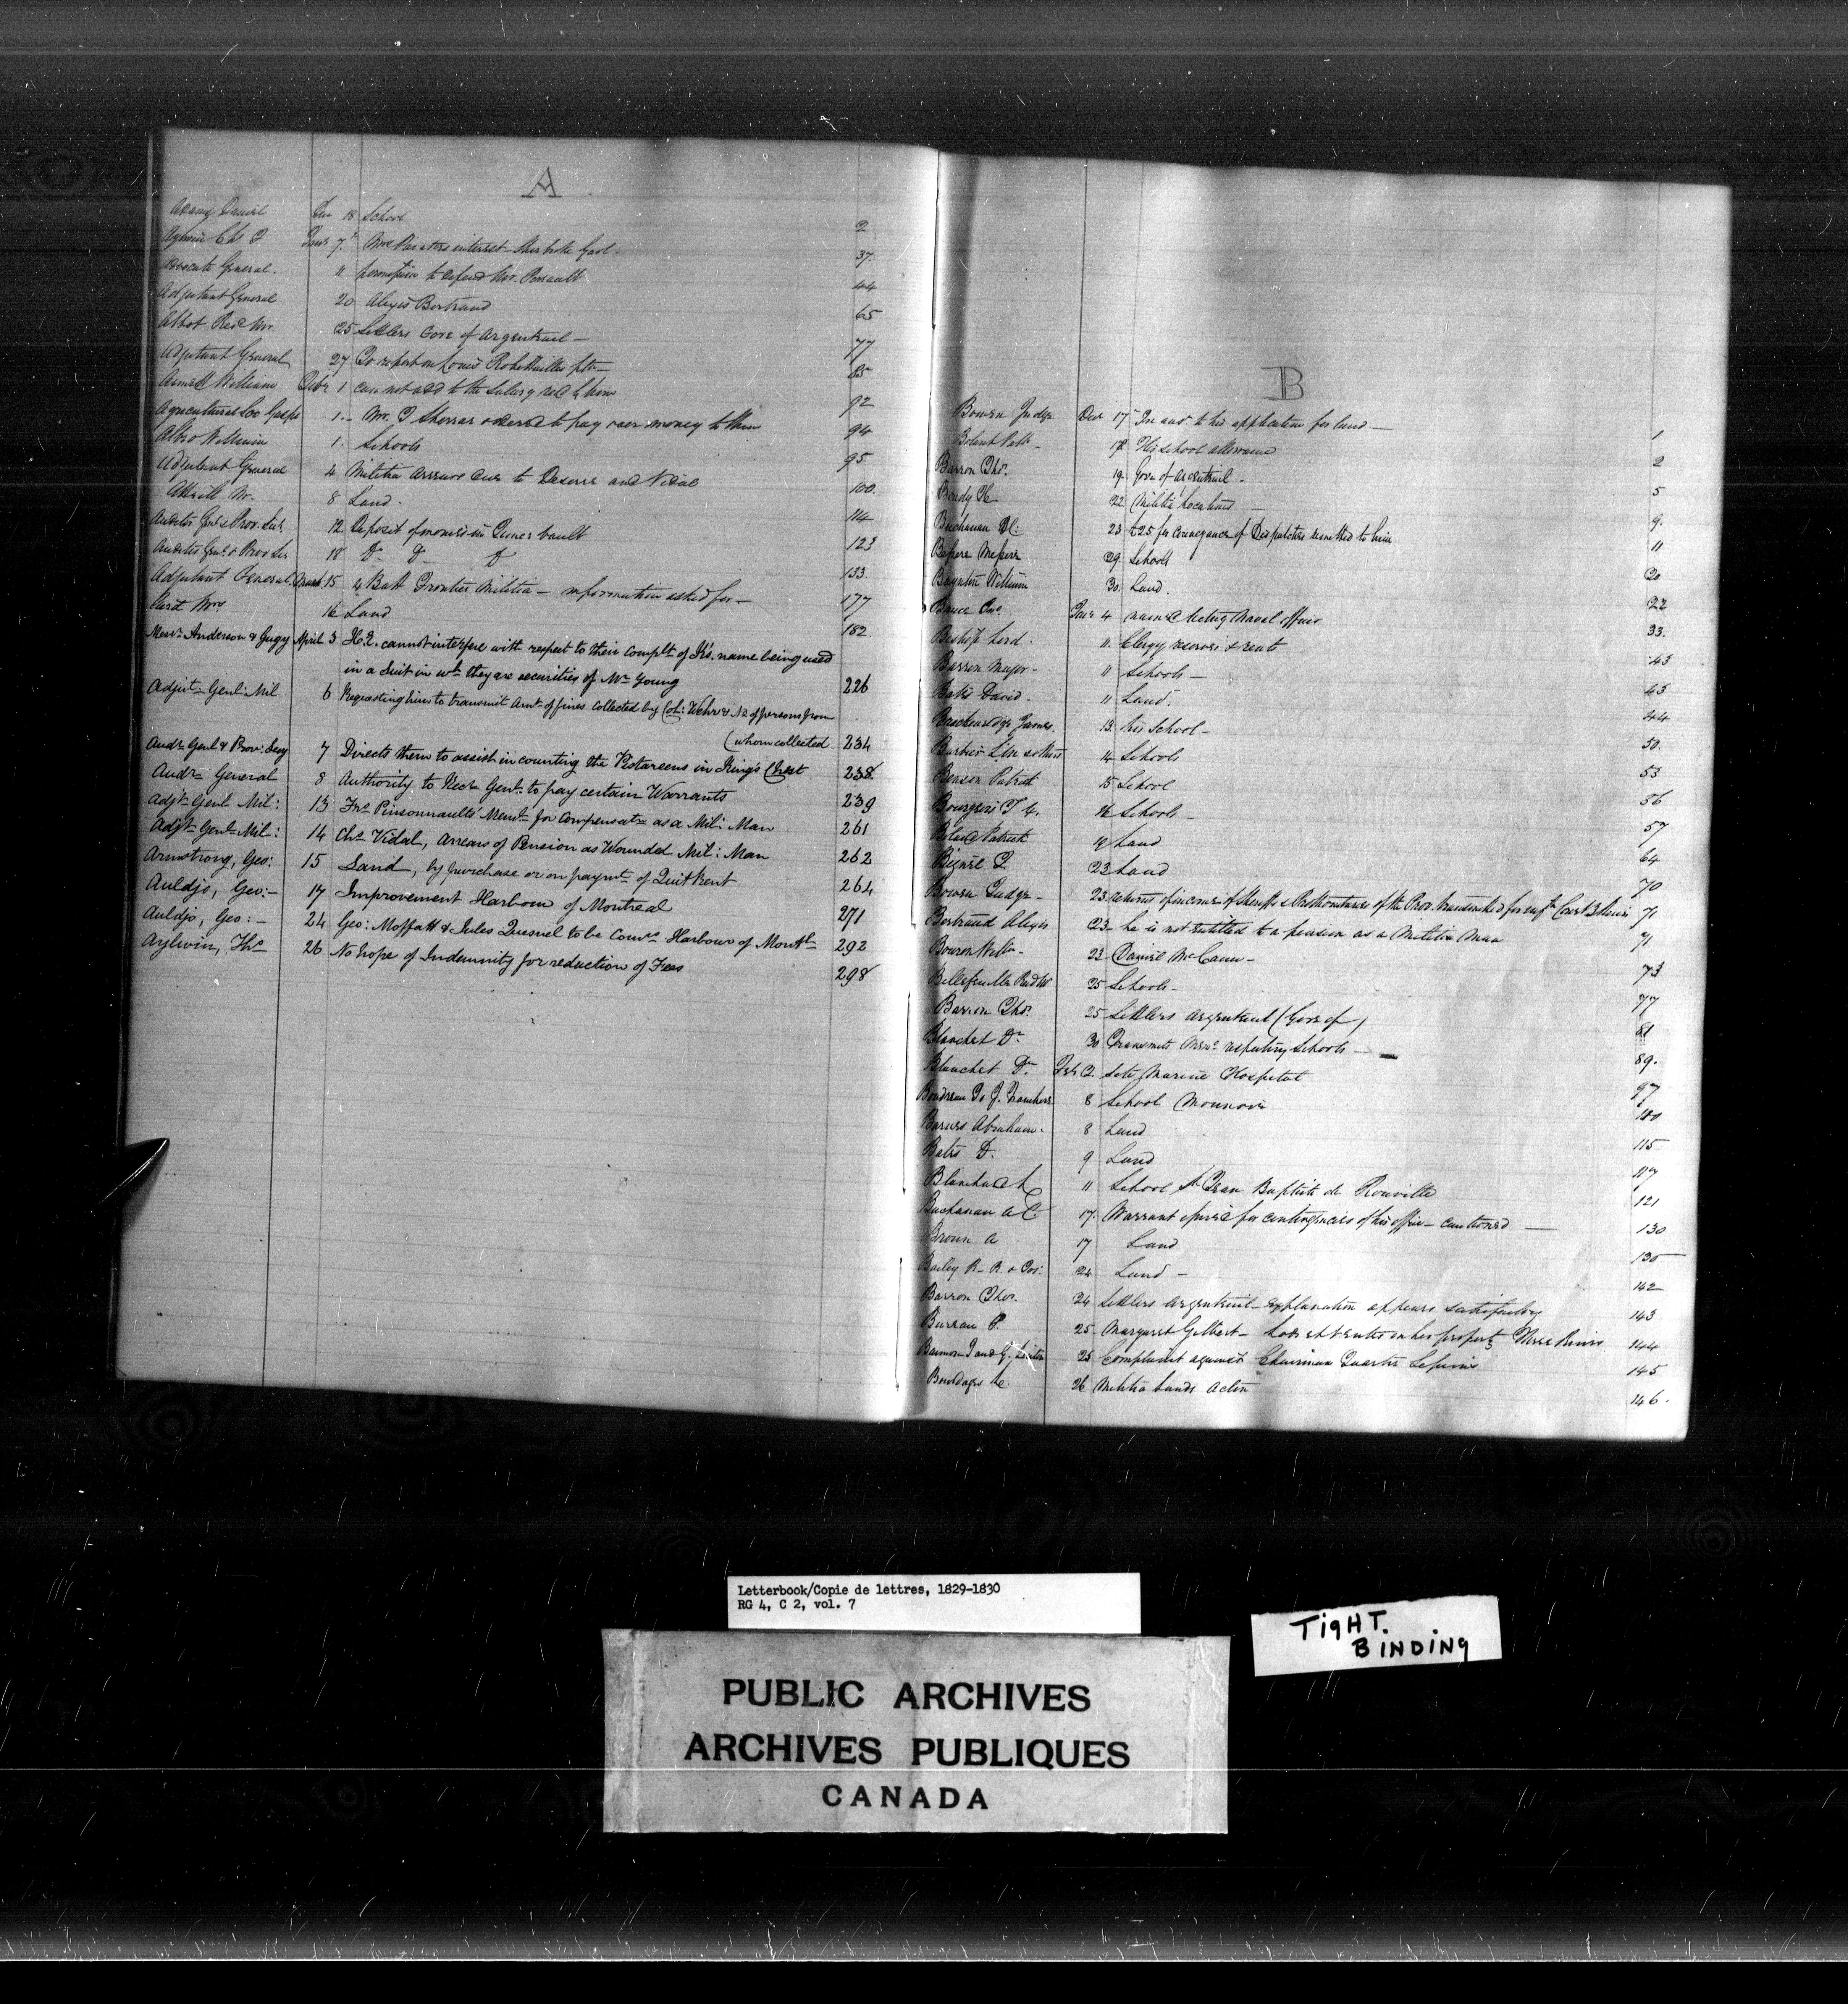 A
Adams Daniel Decr 18 School 2
Aylwin Chs Janr 7 interest Sherbrooke Gaol. 37.
Advocate General. 11 permission to defend Mr. Perrault 44
Adjutant General 20 Alexis Bertrand 65
Abbot Revd Mr. 25 Settlers Gore of Argenteuil — 77
Adjutant General 27 To report on Louis 85
William Feby 1 can not add to the Salary 92
Agricultural Soc Gaspe 1 — Mr. ordered to pay over money to them 94
William 1. Schools 95
Adjutant General 4 Militia arrears due to and Vidal 100.
Mr. 8 Land. 114
Auditor Genl & Prov. 12. Deposit of monies in vault 123
Auditor Genl & Prov 18 Do Do Do 133
Adjutant General March 15 4 Batt Frontier Militia — information asked for — 177
Mrs 16 Land 182
Messrs Anderson & Gugy April 3 H.E. cannot interfere with respect to their complt. of K's. name being used
in a Suit in wh. they are securities of Mr Young 226
Adjut. Genl. Mil 6 Requesting him to transmit Amt. of fines collected by Col: & No of persons from
(whom collected 234
Audr Genl & Prov: Secy 7 Directs them to assist in counting the Pistareens in King's Chest 238
Audr General 8 Authority to Recr Genl. to pay certain Warrants 239
Adjt. Genl Mil: 13 Frs Pinsonnault's Meml. for compensatn as a Mil: Man 261
Adjt. Genl. Mil: 14 Chs Vidal, Arrears of Pension as Wounded Mil: Man 262
Armstrong, Geo: 15 Land, by purchase or on paymt. of Quit Rent 264
Auldjo, Geo: — 17 Improvement Harbour of Montreal 271
Auldjo, Geo: — 24 Geo: Moffatt & Jules Quesnel to be Comrs Harbour of Montl. 292
Aylwin, Ths 26 No hope of Indemnity for reduction of Fees 298
B
Bowen Judge Decr 17 In ansr to his application for land — 1
Patk — 18 His school allowance 2
Barron Thos. 19. Gore of Argenteuil — 5
22 Militia Locations — 9.
Buchanan 23 £25 for conveyance of Dispatches remitted to him 11
Messrs 29. Schools 20
Boynton William 30. Land. 22
Bruce Janr 4 named Acting Naval Officer 33.
Bishop Lord. 11. Clergy reserves & rents 43
Barron Major — 11 Schools — 43
Bates David. 11 Land. 44
Breckenridge James. 13. his School — 50.
14 Schools 53
Benson Patrick 15 School 56
Bourgeois 16 Schools — 57
Patrick Land 64
23 Land 70
Bowen Judge — 23 returns of incomes of Sheriffs & Prothonotaries of the Prov. transmitted for Court 3 Rivers 71
Bertrand Alexis 23 — he is not entitled to a pension as a Militia Man 71
Bowron Willm — 23 Daniel McCann — 73
Bellefeuille Revd Mr 25 Schools — 77
Barron Thos. 25 Settlers Argenteuil (Gore of) 81
Blanchet Dr 30 Transmits respecting Schools — 89.
Blanchet Dr. Feb 2. Marine Hospital 97
Boudreau 8 School Monnoir 100
Barnes Abraham. 8 Land 115
Bates D. 9 Land 117
Blanchard L 11 School St Jean Baptiste de Rouville 121
Buchanan A C. 17. Warrant issued for contingencies of his office — cautioned — 130
Brown A 17 Land 135
Bailey R. R. & 24 Land — 142
Barron Thos. 24 Settlers Argenteuil — explanation appears satisfactory 143
Bureau P. 25. Margaret Gilbert — on her property Three Rivers 144
25 Complaint against Chairman Quarter Sessions 145
Bourdages 26 Militia Lands 146.
Letterbook/Copie de lettres, 1829-1830
RG 4, C 2, vol. 7
TigHT.
BINDING
PUBLIC ARCHIVES
ARCHIVES PUBLIQUES
CANADA